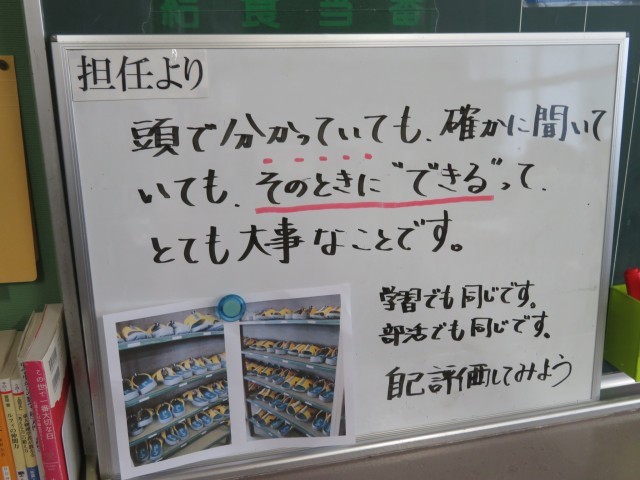 給食当番
担任より
頭で分かっていても、確かに聞いて
いても、そのときに"できる"って、
とても大事なことです。
学習でも同じです。
部活でも同じです。
自己評価してみよう
この世で一番大切な日